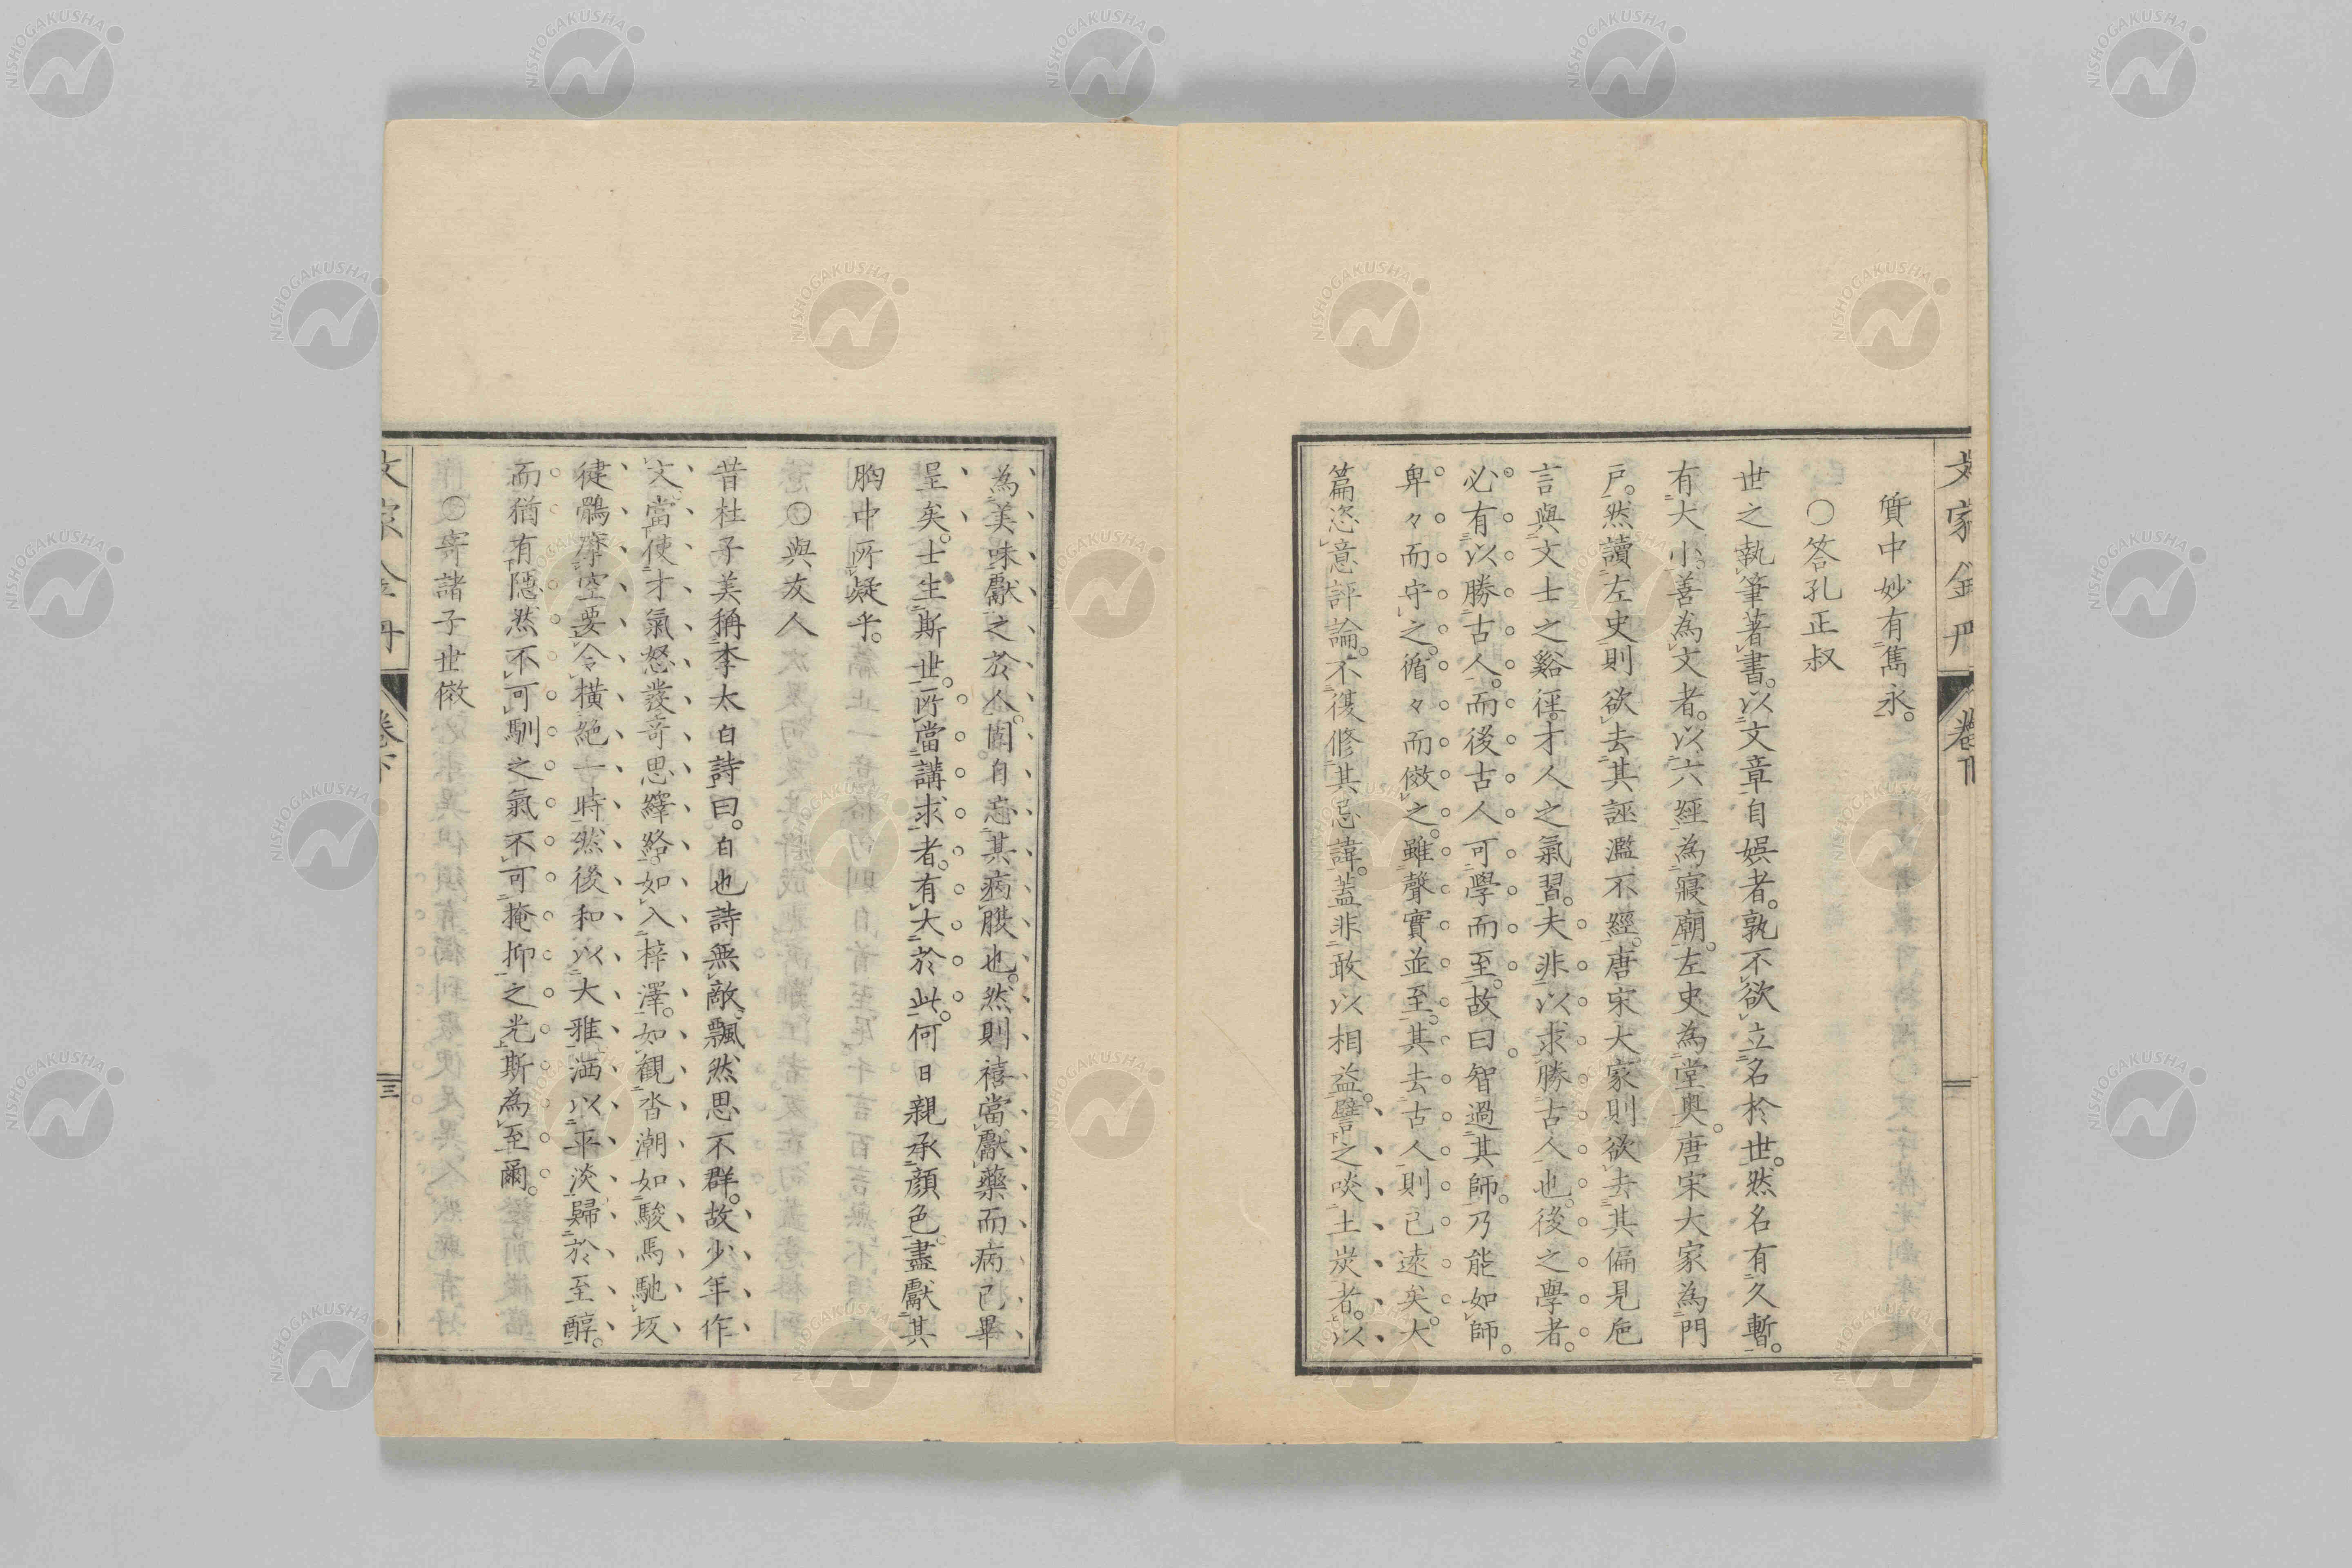 質中妙有雋永。
○答孔正叔
世之執筆著書。以文章自娯者。孰不欲立名於世。然名有久暫。
有大小。善為文者。以六經為寢廟。左史為堂奥。唐宋大家為門
戸。然讀左史則欲去其誣濫不經。唐宋大家則欲去其偏見卮
言與文士之谿徑。才人之氣習。夫非以求勝古人也。後之學者。
必有以勝古人。而後古人可學而至。故曰智過其師。乃能如師。
卑々而守之。循々而倣之。雖聲實並至。其去古人則已遠矣。大
篇恣意評論。不復修其忌諱。葢非敢以相益。譬之啖土炭者。以
為美味獻之於人。固自忘其病膜也。然則禧當獻藥而病已畢
呈矣。士生斯世。所當講求者。有大於此。何日親承顔色。盡獻其
胸中所凝乎。
○與友人
昔杜子美稱李太白詩曰。白也詩無敵。飄然思不群。故少年作
文。當使才氣怒發。奇思繹絡。如入梓澤。如觀沓潮。如駿馬馳坂
健鶻摩空。要令横絶一時。然後和以大雅。洒以平淡。歸於至醇。
而猶有隠然不可馴之氣。不可掩抑之光。斯為至爾。
○寄諸子世倣
文家金丹
卷下
二
文家金丹
卷下
三
NISHOGAKUSHA